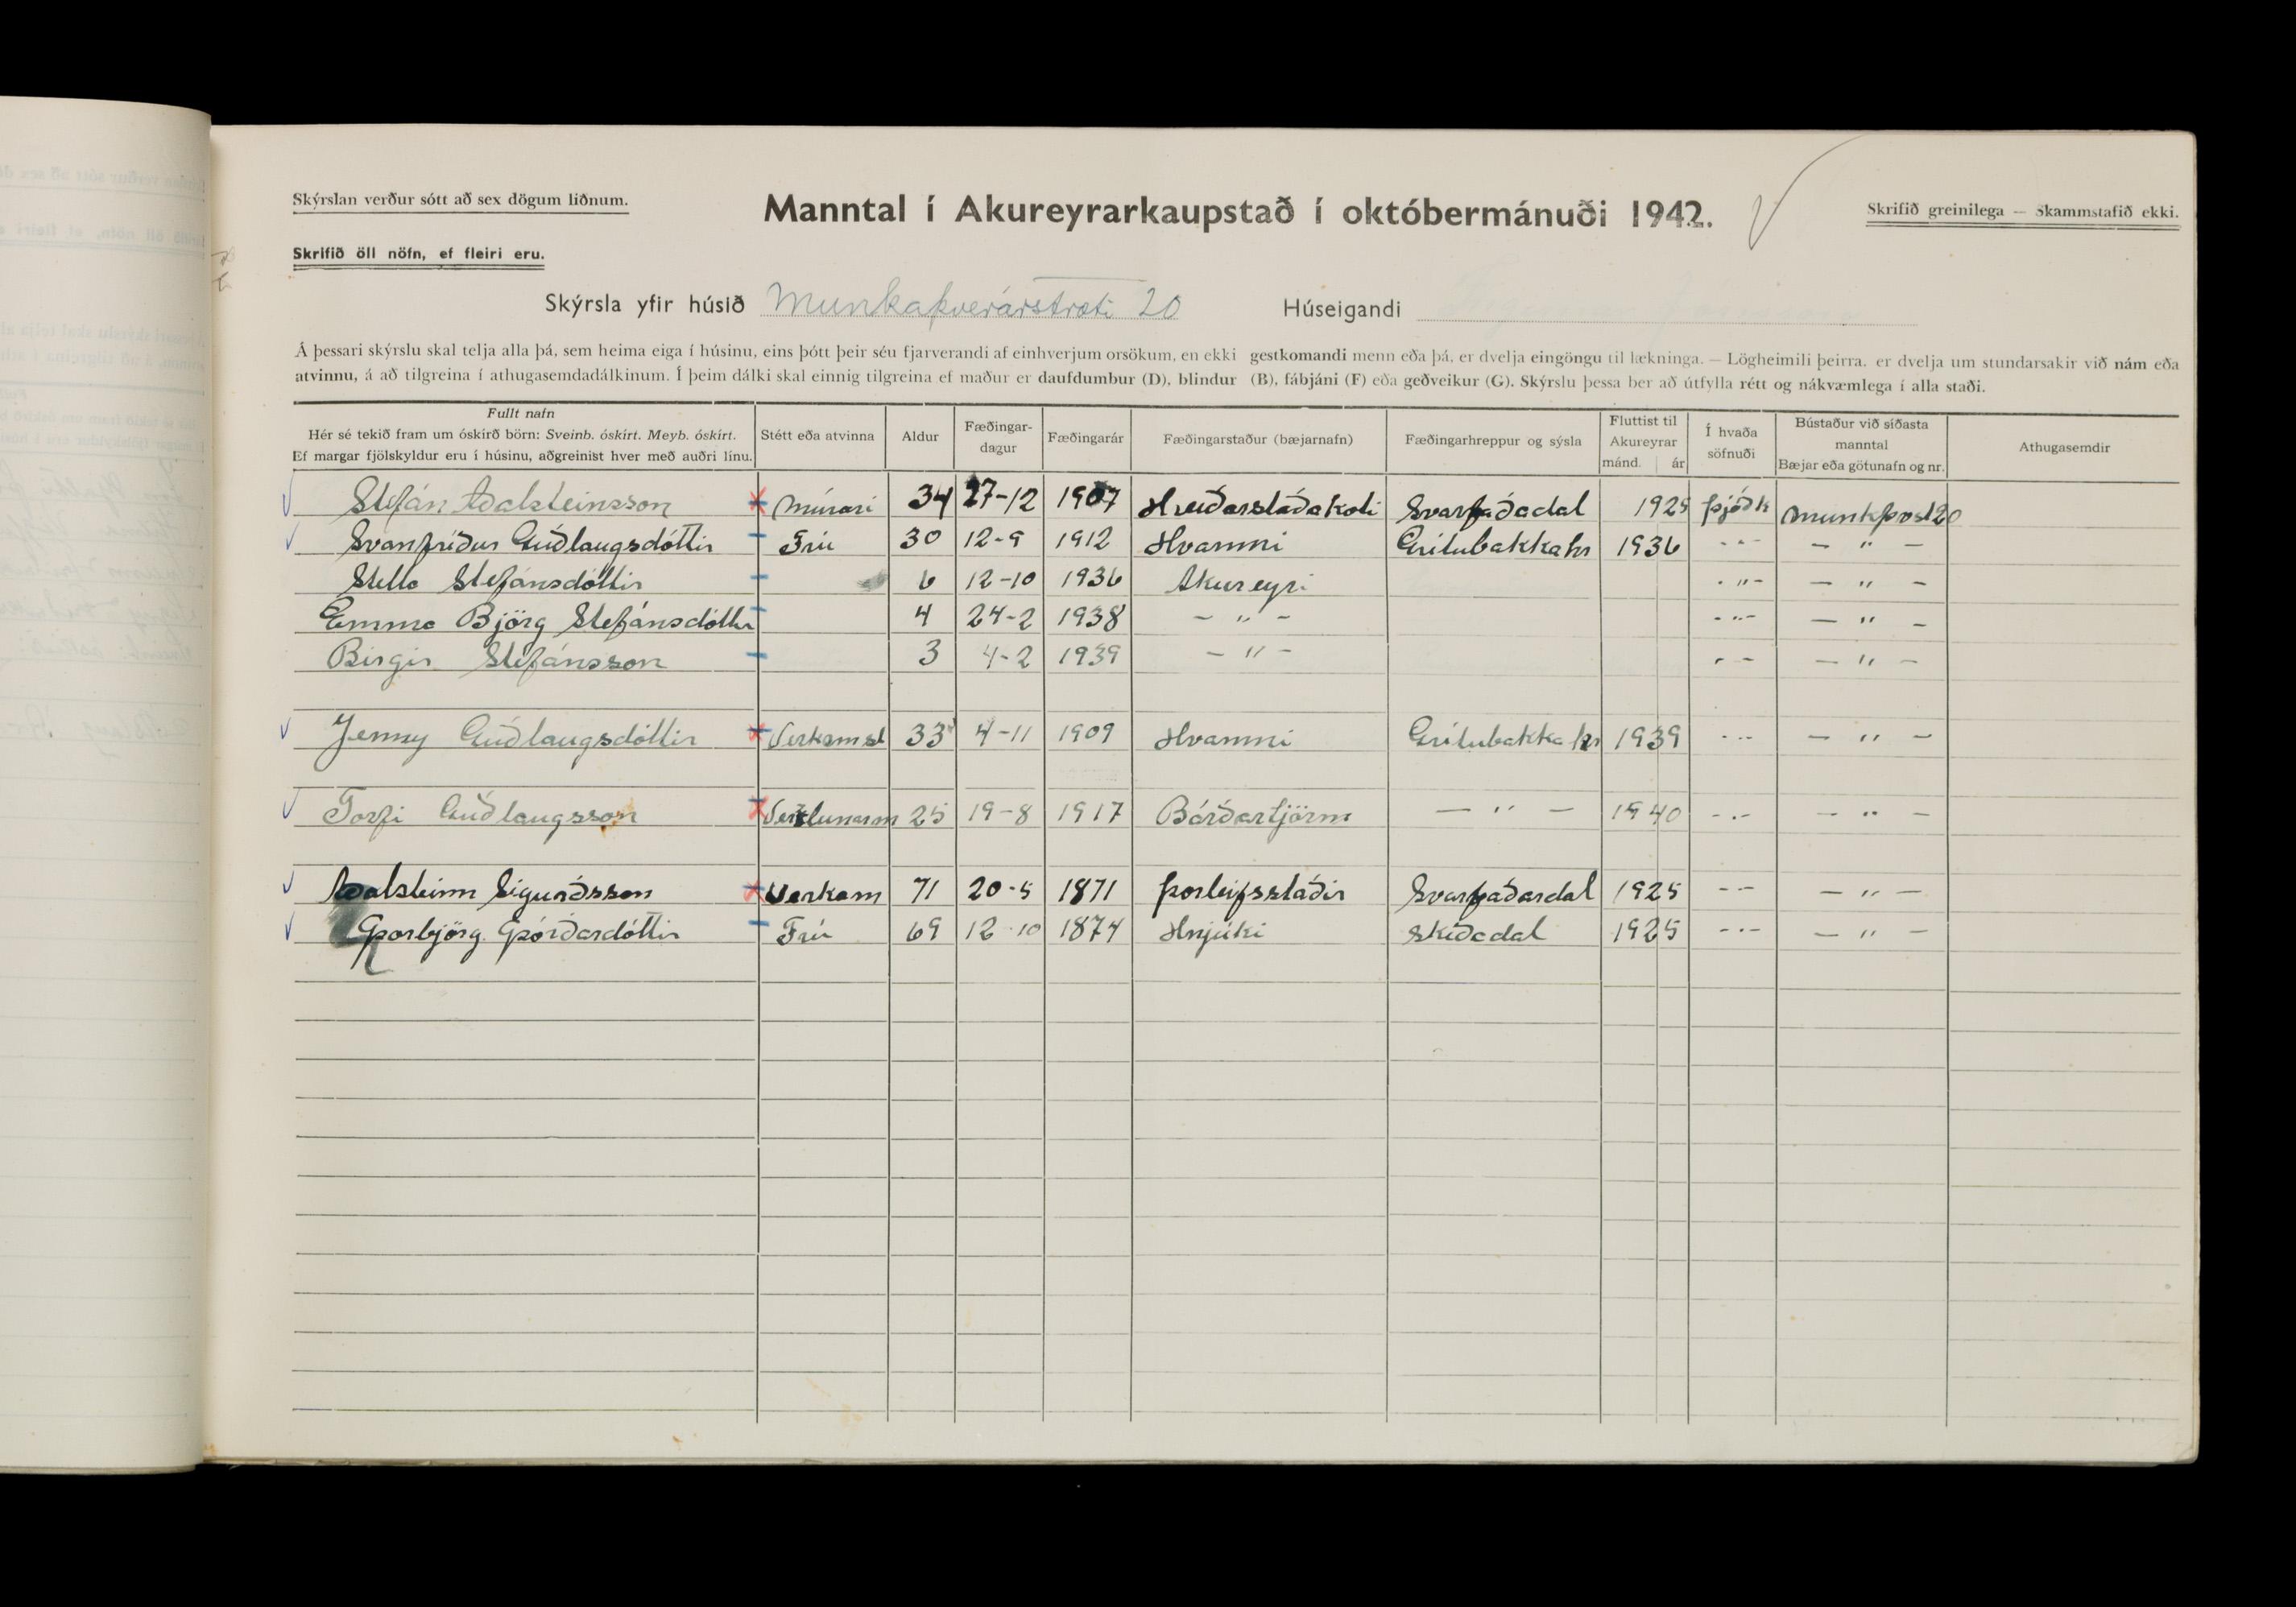 Skýrslan verður sótt að sex dögum liðnum.
Manntal í Akureyrarkaupstað í októbermánuði 1942.
Skrifið greinilega — Skammstafið ekki.
Skrifið öll nöfn, ef fleiri eru.
Skýrsla yfir húsið Munkaþverárstræti 20 Húseigandi
Á þessari skýrslu skal telja alla þá, sem heima eiga í húsinu, eins þótt þeir séu fjarverandi af einhverjum orsökum, en ekki gestkomandi menn eða þá, er dvelja eingöngu til lækninga. — Lögheimili þeirra, er dvelja um stundarsakir við nám eða
atvinnu, á að tilgreina í athugasemdadálkinum. Í þeim dálki skal einnig tilgreina ef maður er daufdumbur (D), blindur (B), fábjáni (F) eða geðveikur (G). Skýrslu þessa ber að útfylla rétt og nákvæmlega í alla staði.
Fullt nafn
Hér sé tekið fram um óskírð börn: Sveinb. óskírt. Meyb. óskírt.
Ef margar fjölskyldur eru í húsinu, aðgreinist hver með auðri línu.
Stétt eða atvinna
Aldur
Fæðingar-
dagur
Fæðingarár
Fæðingarstaður (bæjarnafn)
Fæðingarhreppur og sýsla
Fluttist til
Akureyrar
mánd. ár
Í hvaða
söfnuði
Bústaður við síðasta
manntal
Bæjar eða götunafn og nr.
Athugasemdir
Stefán Aðalsteinsson Múrari 34 27-12 1907 Hreiðarstaðakoti Svarfaðadal 1925 þjóðk Munkþvst 20
Svanfríður Guðlaugsdóttir Frú 30 12-9 1912 Hvammi Grítubakkahr 1936 - " - — " —
Stella Stefánsdóttir 6 12-10 1936 Akureyri - " - — " —
Emma Björg Stefánsdóttir 4 24-2 1938 — " — - " - — " —
Birgir Stefánsson 3 4-2 1939 — " — " - — " —
Jenny Guðlaugsdóttir Verkamst 33 4-11 1909 Hvammi Grítubakka hr 1939 - " - — " —
Torfi Guðlaugsson Verzlunarm 25 19-8 1917 Bárðartjörn — " — 1940 - " - — " —
Aðalsteinn Sigurðsson Verkam 71 20-5 1871 Þorleifsstaðir Svarfaðardal 1925 - - — " —
Þorbjörg Þórðardóttir Frú 69 12-10 1874 Hnjúki Skíðadal 1925 - " - — " —